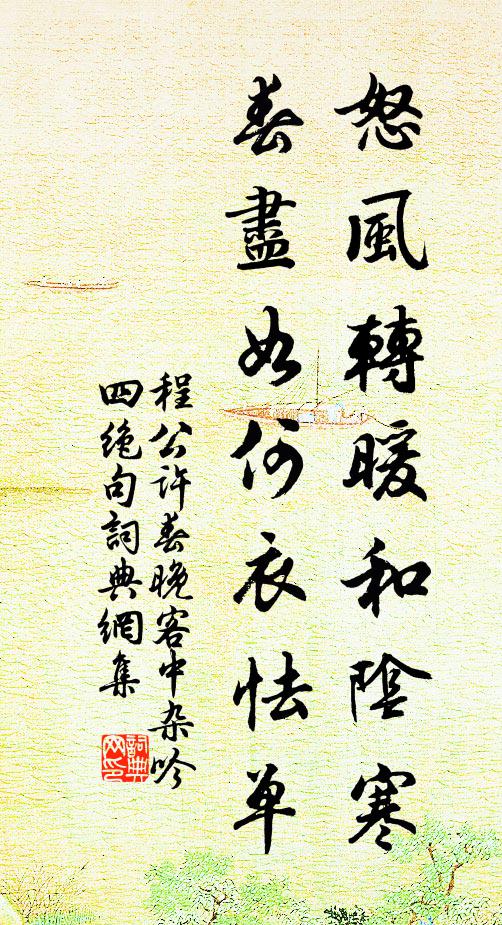 怒風轉暖和陰寒
春盡如何衣怯单
程公許春晚客中杂吟
四绝句詞典網集
詞典网印